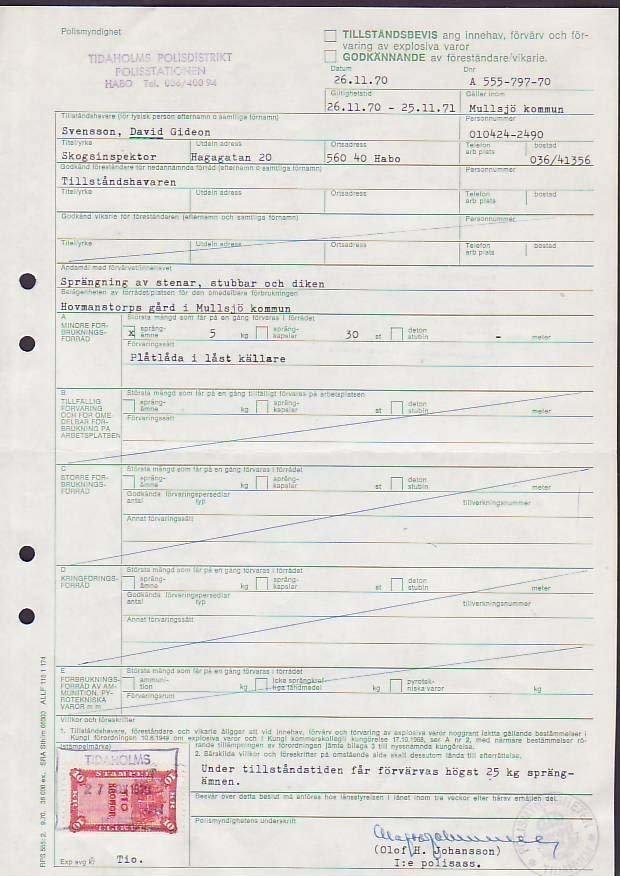 Polismyndighet
TIDAHOLMS POLISDISTRIKT
POLISSTATIONEN
HABO Tel. 036/400 94
TILLSTÅNDSBEVIS ang innehav, förvärv och för-
varing av explosiva varor
GODKÄNNANDE av föreståndare/vikarie.
Datum Dnr
26.11.70 A 555-797-70
Giltighetstid Gäller inom
26.11.70 - 25.11.71 Mullsjö kommun
Tillståndshavare (för fysisk person efternamn o samtliga förnamn) Personnummer
Svensson, David Gideon 010424-2490
Titel/yrke Utdeln adress Ortsadress Telefon arb plats bostad
Skogsinspektor Hagagatan 20 560 40 Habo 036/41356
Godkänd föreståndare för nedannämnda förråd (efternamn o samtliga förnamn) Personnummer
Tillståndshavaren
Titel/yrke Utdeln adress Ortsadress Telefon arb plats bostad
Godkänd vikarie för föreståndaren (efternamn och samtliga förnamn) Personnummer
Titel/yrke Utdeln adress Ortsadress Telefon arb plats bostad
Ändamål med förvärvet/innehavet
Sprängning av stenar, stubbar och diken
Belägenheten av förrådet/platsen för den omedelbara förbrukningen
Hovmanstorps gård i Mullsjö kommun
A
MINDRE FÖR-
BRUKNINGS-
FÖRRÅD
Största mängd som får på en gång förvaras i förrådet
x språng-ämne 5 kg spräng-kapslar 30 st deton stubin - meter
Förvaringssätt
Plåtlåda i låst källare
B
TILLFÄLLIG
FÖRVARING
OCH FÖR OME-
DELBAR FÖR-
BRUKNING PÅ
ARBETSPLATSEN
Största mängd som får på en gång tillfälligt förvaras på arbetsplatsen
spräng-ämne kg spräng-kapslar st deton stubin meter
Förvaringssätt
C
STÖRRE FÖR-
BRUKNINGS-
FÖRRÅD
Största mängd som får på en gång förvaras i förrådet
spräng-ämne kg spräng-kapslar st deton stubin meter
Godkända förvaringspersedlar
antal typ tillverkningsnummer
Annat förvaringssätt
D
KRINGFÖRINGS-
FÖRRÅD
Största mängd som får på en gång förvaras i förrådet
spräng-ämne kg spräng-kapslar st deton stubin meter
Godkända förvaringspersedlar
antal typ tillverkningsnummer
Annat förvaringssätt
E
FÖRBRUKNINGS-
FÖRRÅD AV AM-
MUNITION, PY-
ROTEKNISKA
VAROR m m
Största mängd som får på en gång förvaras i förrådet
ammuni-tion kg icke sprängkraf-tiga tändmedel kg pyrotek-niska varor kg
Förvaringsrum
Villkor och föreskrifter
1. Tillståndshavare, föreståndare och vikarie åligger att vid innehav, förvärv och förvaring av explosiva varor noggrant iaktta gällande bestämmelser i
Kungl förordningen 10.6.1949 om explosiva varor och i Kungl kommerskollegii kungörelse 17.10.1968, ser A nr 2, med närmare bestämmelser rö-
rande tillämpningen av förordningen jämte bilaga 3 till nyssnämnda kungörelse.
(stämpelmärke)
2. Särskilda villkor och föreskrifter på omstående sida skall dessutom lända till efterrättelse.
TIDAHOLMS
STÄMPEL
10
TIO
KRONOR
Under tillståndstiden får förvärvas högst 25 kg spräng-
ämnen.
Besvär över detta beslut må anföras hos länsstyrelsen i länet inom tre veckor efter härav erhållen del.
Polismyndighetens underskrift
(Olof H. Johansson)
I:e polisass.
Exp avg kr Tio.